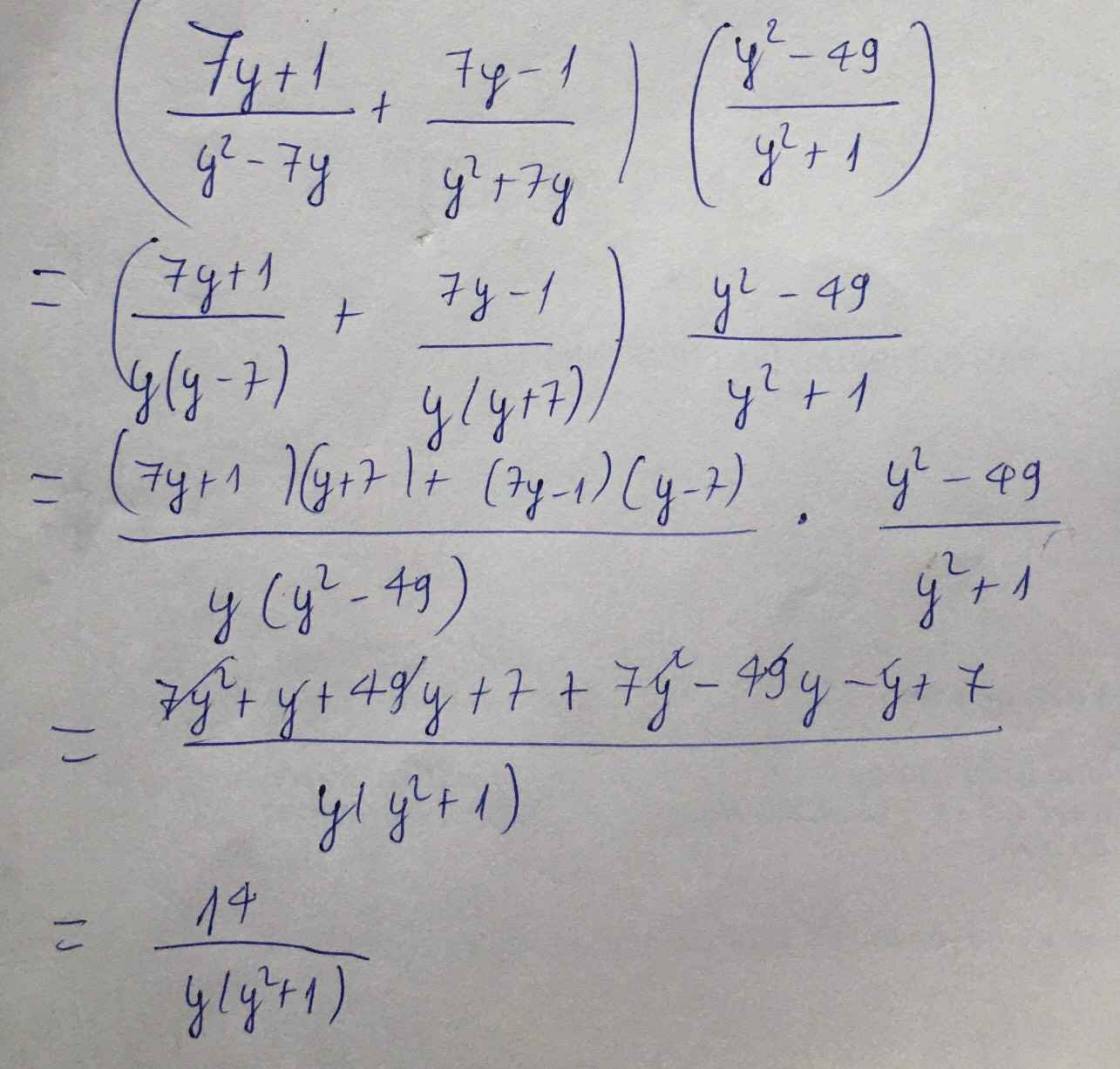 ( (7y+1)/(y² - 7y) + (7y-1)/(y²+7y) ) ( (y² - 49)/(y² + 1) )
= ( (7y+1)/(y(y-7)) + (7y-1)/(y(y+7)) ) (y² - 49)/(y² + 1)
= ((7y+1)(y+7) + (7y-1)(y-7))/(y(y² - 49)) · (y² - 49)/(y² + 1)
= (7y² + y + 49y + 7 + 7y² - 49y - y + 7)/(y(y² + 1))
= 14/(y(y²+1))